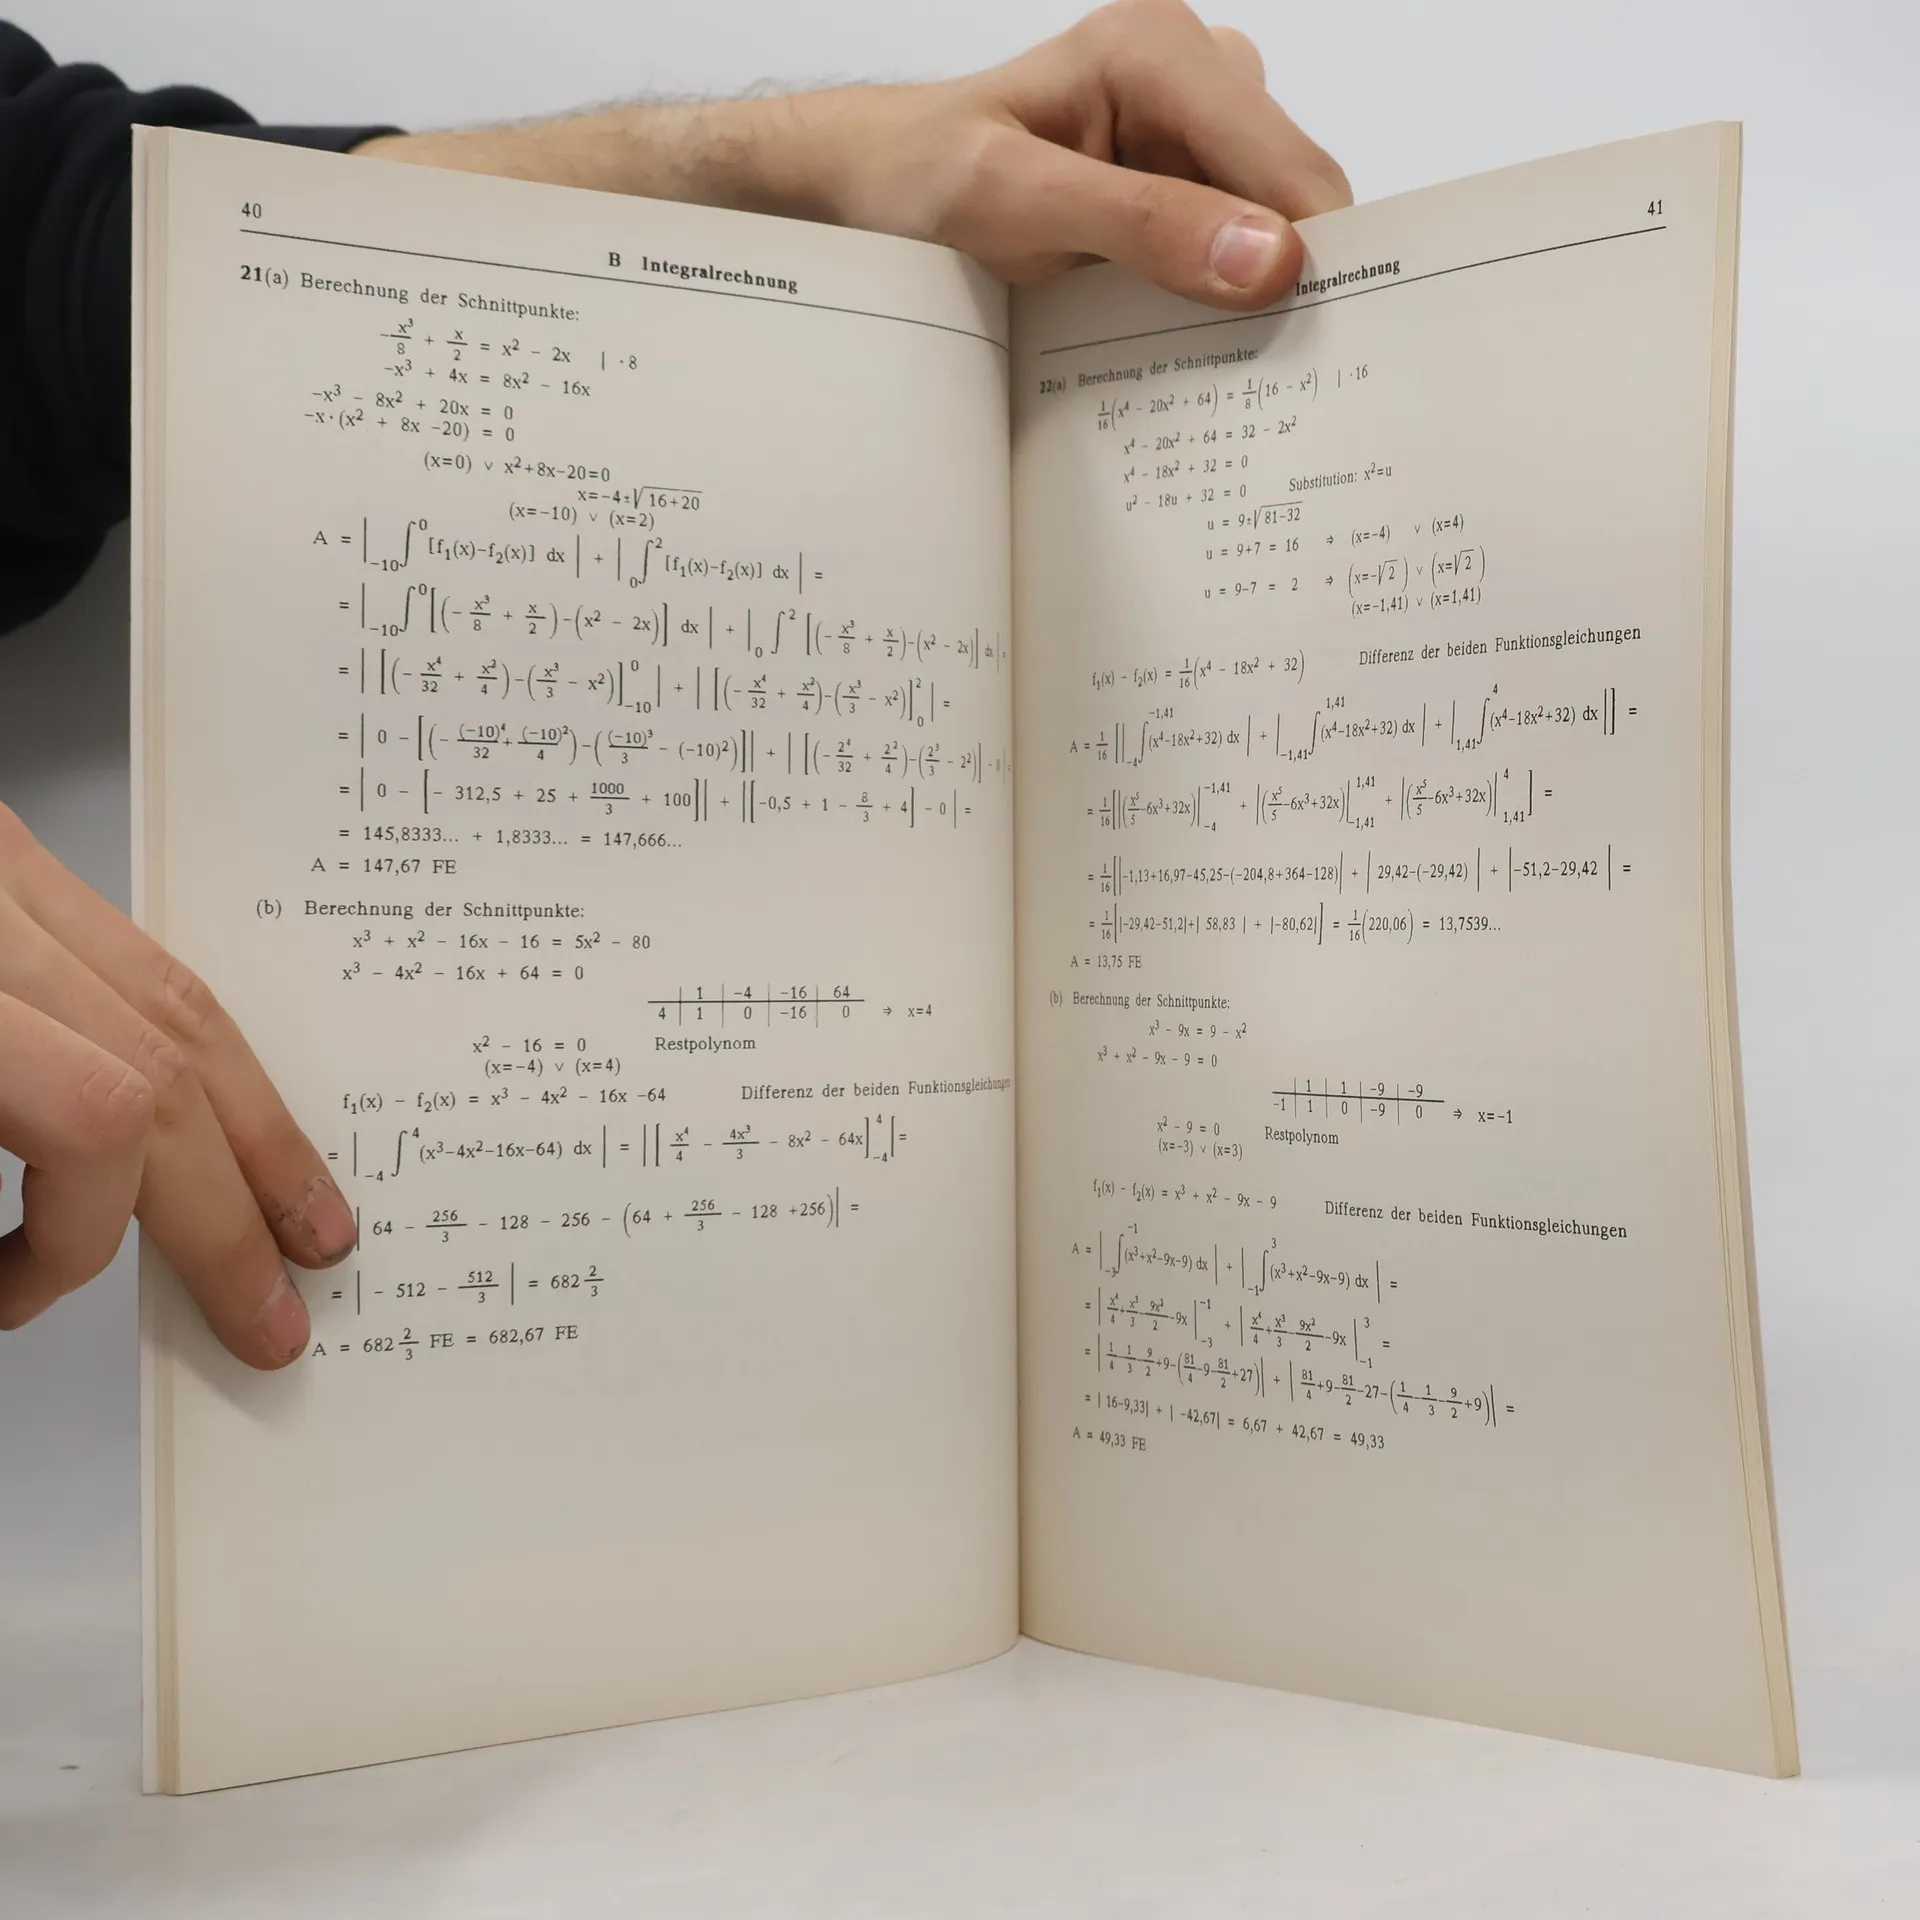 40
B Integralrechnung
21(a) Berechnung der Schnittpunkte:
-x³/8 + x/2 = x² - 2x | ·8
-x³ + 4x = 8x² - 16x
-x³ - 8x² + 20x = 0
-x·(x² + 8x -20) = 0
(x=0) ∨ x²+8x-20=0
x=-4±√16+20
(x=-10) ∨ (x=2)
A = |₋₁₀∫⁰[f₁(x)-f₂(x)] dx| + |₀∫²[f₁(x)-f₂(x)] dx| =
= |₋₁₀∫⁰[(-x³/8 + x/2)-(x² - 2x)] dx| + |₀∫²[(-x³/8 + x/2)-(x² - 2x)] dx| =
= |[(-x⁴/32 + x²/4)-(x³/3 - x²)]⁰₋₁₀| + |[(-x⁴/32 + x²/4)-(x³/3 - x²)]²₀| =
= |0 - [(-(-10)⁴/32 + (-10)²/4)-((-10)³/3 - (-10)²)]| + |[(-2⁴/32 + 2²/4)-(2³/3 - 2²)] - 0| =
= |0 - [- 312,5 + 25 + 1000/3 + 100]| + |[-0,5 + 1 - 8/3 + 4] - 0| =
= 145,8333... + 1,8333... = 147,666...
A = 147,67 FE
(b) Berechnung der Schnittpunkte:
x³ + x² - 16x - 16 = 5x² - 80
x³ - 4x² - 16x + 64 = 0
1 | -4 | -16 | 64
4 | 1 | 0 | -16 | 0 ⇒ x=4
x² - 16 = 0 Restpolynom
(x=-4) ∨ (x=4)
f₁(x) - f₂(x) = x³ - 4x² - 16x -64 Differenz der beiden Funktionsgleichungen
= |₋₄∫⁴(x³-4x²-16x-64) dx| = |[x⁴/4 - 4x³/3 - 8x² - 64x]⁴₋₄| =
|64 - 256/3 - 128 - 256 - (64 + 256/3 - 128 +256)| =
= |- 512 - 512/3| = 682 2/3
A = 682 2/3 FE = 682,67 FE
41
Integralrechnung
22(a) Berechnung der Schnittpunkte:
1/16(x⁴ - 20x² + 64) = 1/8(16 - x²) | ·16
x⁴ - 20x² + 64 = 32 - 2x²
x⁴ - 18x² + 32 = 0
u² - 18u + 32 = 0 Substitution: x²=u
u = 9±√81-32
u = 9+7 = 16 ⇒ (x=-4) ∨ (x=4)
u = 9-7 = 2 ⇒ (x=-√2) ∨ (x=√2)
(x=-1,41) ∨ (x=1,41)
f₁(x) - f₂(x) = 1/16(x⁴ - 18x² + 32) Differenz der beiden Funktionsgleichungen
A = 1/16[|₋₄∫^-1,41(x⁴-18x²+32) dx| + |_-1,41∫^1,41(x⁴-18x²+32) dx| + |_1,41∫⁴(x⁴-18x²+32) dx|] =
= 1/16[|(x⁵/5-6x³+32x)|^-1,41_-4 + |(x⁵/5-6x³+32x)|^1,41_-1,41 + |(x⁵/5-6x³+32x)|^4_1,41] =
= 1/16[|-1,13+16,97-45,25-(-204,8+364-128)| + |29,42-(-29,42)| + |-51,2-29,42| =
= 1/16[|-29,42-51,2|+|58,83| + |-80,62|] = 1/16(220,06) = 13,7539...
A = 13,75 FE
(b) Berechnung der Schnittpunkte:
x³ - 9x = 9 - x²
x³ + x² - 9x - 9 = 0
1 | 1 | -9 | -9
-1 | 1 | 0 | -9 | 0 ⇒ x=-1
x² - 9 = 0 Restpolynom
(x=-3) ∨ (x=3)
f₁(x) - f₂(x) = x³ + x² - 9x - 9 Differenz der beiden Funktionsgleichungen
A = |₋₃∫⁻¹(x³+x²-9x-9) dx| + |₋₁∫³(x³+x²-9x-9) dx| =
= |x⁴/4+x³/3-9x²/2-9x|⁻¹₋₃ + |x⁴/4+x³/3-9x²/2-9x|³₋₁ =
= |1/4-1/3-9/2+9-(81/4-9-81/2+27)| + |81/4+9-81/2-27-(1/4-1/3-9/2+9)| =
= |16-9,33| + |-42,67| = 6,67 + 42,67 = 49,33
A = 49,33 FE